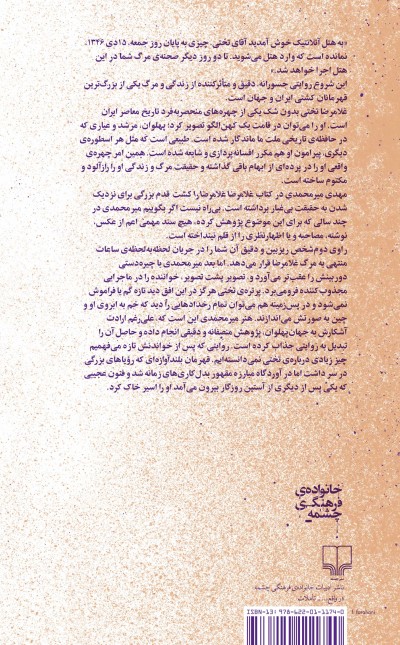 «به هتل آتلانتیک خوش آمدید آقای تختی. چیزی به پایان روز جمعه، ۱۵ دی ۱۳۴۶،
نمانده است که وارد هتل می‌شوید. تا دو روز دیگر صحنه‌ی مرگ شما در این
هتل اجرا خواهد شد.»
این شروع روایتی جسورانه، دقیق و متأثرکننده از زندگی و مرگ یکی از بزرگ‌ترین
قهرمانان کشتی ایران و جهان است.
غلامرضا تختی بدون شک یکی از چهره‌های منحصربه‌فرد تاریخ معاصر ایران
است. او را می‌توان در قامت یک کهن‌الگو تصویر کرد؛ پهلوان، مرشد و عیاری که
در حافظه‌ی تاریخی ملت ما ماندگار شده است. طبیعی است که مثل هر اسطوره‌ی
دیگری، پیرامون او هم مکرر افسانه‌پردازی و شایعه شده است. همین امر چهره‌ی
واقعی او را در پرده‌ای از ابهام باقی گذاشته و حقیقت مرگ و زندگی او را رازآلود و
مکتوم ساخته است.
مهدی میرمحمدی در کتاب غلامرضا غلامرضا را کشت قدم بزرگی برای نزدیک
شدن به حقیقت بی‌غبار برداشته است. بی‌راه نیست اگر بگوییم میرمحمدی در
چند سالی که برای این موضوع پژوهش کرده، هیچ سند مهمی اعم از عکس،
نوشته، مصاحبه و یا اظهارنظری را از قلم نینداخته است.
راوی دوم‌شخص ریزبین و دقیق آن شما را در جریان لحظه‌به‌لحظه‌ی ساعات
منتهی به مرگ غلامرضا قرار می‌دهد، اما بعد میرمحمدی با چیره‌دستی
دوربینش را عقب‌تر می‌آورد و، تصویر پشت تصویر، خواننده را در ماجرایی
مجذوب‌کننده فرومی‌برد. پرتره‌ی تختی هرگز در این افق دید تازه گم یا فراموش
نمی‌شود و در پس‌زمینه هم می‌توان تمام رخدادهایی را دید که خم به ابروی او و
چین به صورتش می‌اندازند. هنر میرمحمدی این است که، علی‌رغم ارادت
آشکارش به جهان‌پهلوان، پژوهش منصفانه و دقیقی انجام داده و حاصل آن را
تبدیل به روایتی جذاب کرده است. روایتی که پس از خواندنش تازه می‌فهمیم
چیز زیادی درباره‌ی تختی نمی‌دانسته‌ایم. قهرمان بلندآوازه‌ای که رؤیاهای بزرگی
در سر داشت اما در آوردگاه مبارزه مقهور بدل‌کاری‌های زمانه شد و فنون عجیبی
که یکی پس از دیگری از آستین روزگار بیرون می‌آمد او را اسیر خاک کرد.
خانواده‌ی
فرهنگی
چشمه
ISBN-13: 978-622-01-1174-0